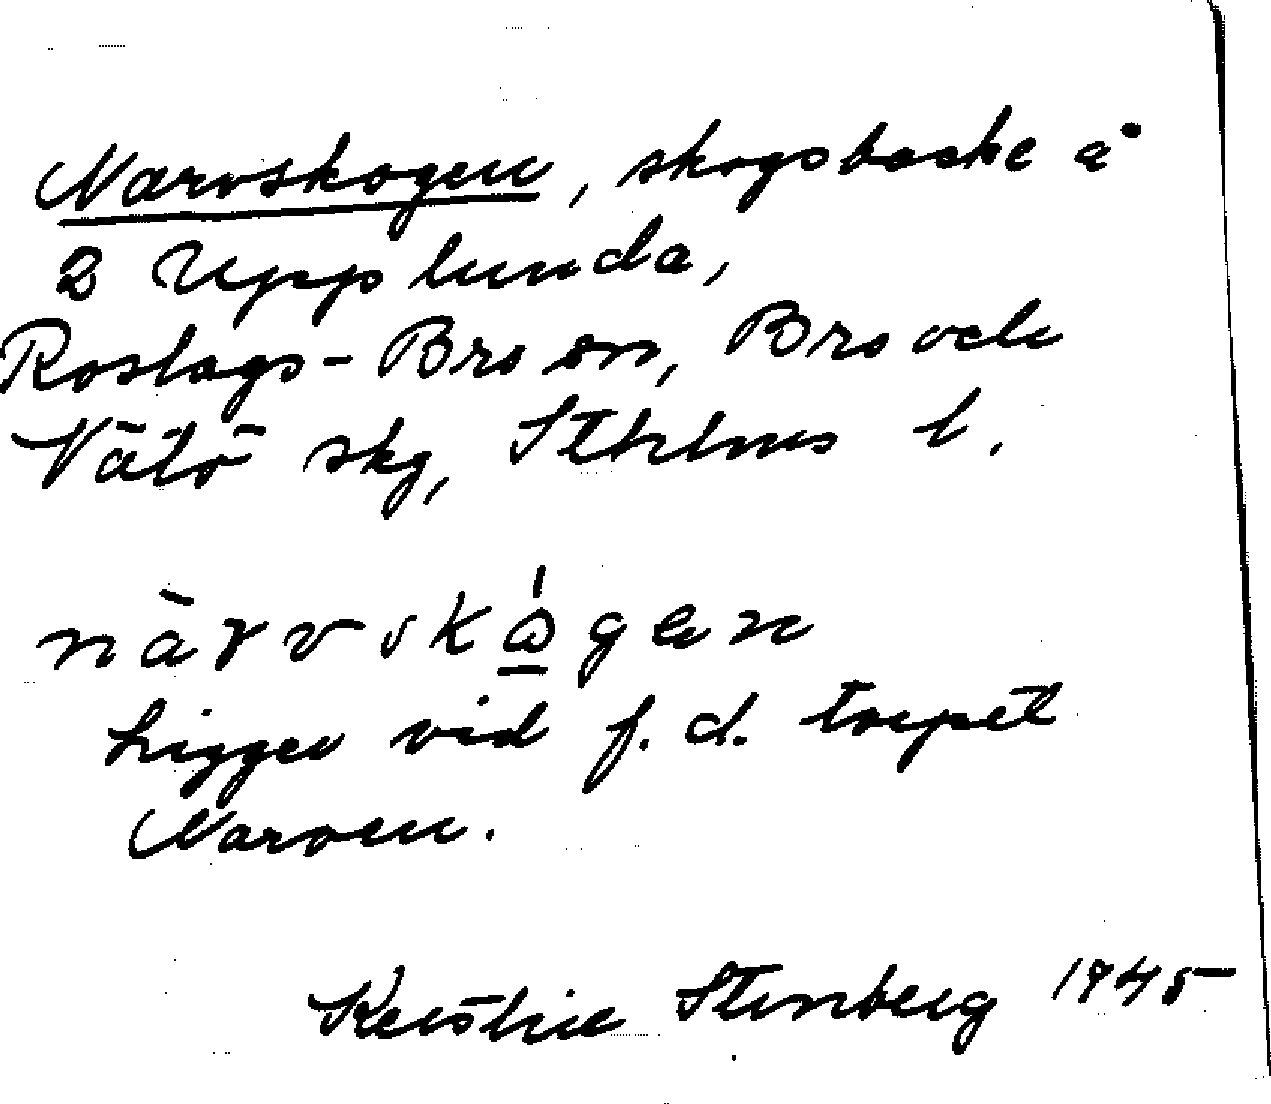 Narvskogen, skogsbacke å
2 Upplunda,
Roslags-Bro sn, Bro och
Vätö skg, Sthlms l.
nàrvskǫ́gen
Ligger vid f. d. torpet
Narven.
Kerstin Stenberg 1945